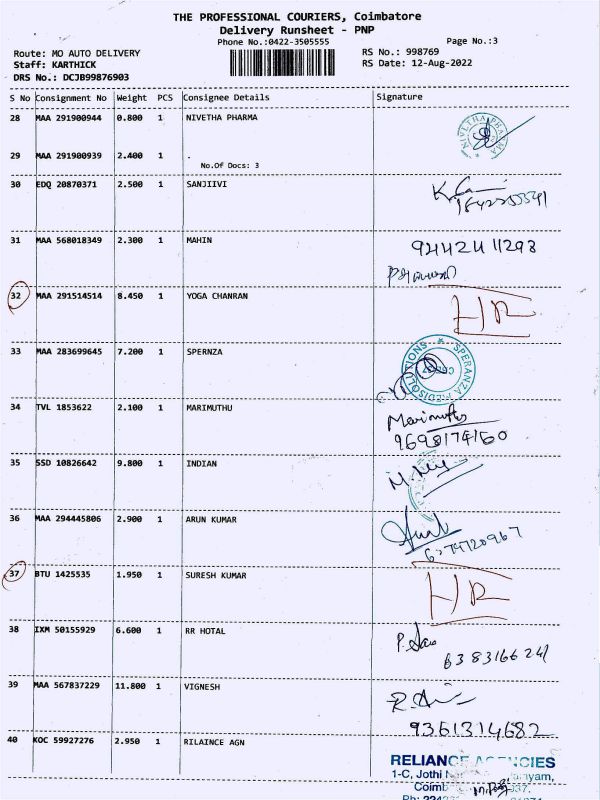 THE PROFESSIONAL COURIERS, Coimbatore
Delivery Runsheet - PNP
Phone No.:0422-3505555
Page No.:3
Route: MO AUTO DELIVERY
RS No.: 998769
Staff: KARTHICK
RS Date: 12-Aug-2022
DRS No.: DCJB99876903
S No Consignment No Weight PCS Consignee Details Signature
28 MAA 291900944 0.800 1 NIVETHA PHARMA
NIVETHA PHARMA
29 MAA 291900939 2.400 1 .
No.Of Docs: 3
30 EDQ 20870371 2.500 1 SANJIIVI
31 MAA 568018349 2.300 1 MAHIN
9442411298
32 MAA 291514514 8.450 1 YOGA CHANRAN
HR
33 MAA 283699645 7.200 1 SPERNZA
SPERANZA MEDISOLUTIONS
34 TVL 1853622 2.100 1 MARIMUTHU
Marimuthu
9698174160
35 SSD 10826642 9.800 1 INDIAN
36 MAA 294445806 2.900 1 ARUN KUMAR
6379720967
37 BTU 1425535 1.950 1 SURESH KUMAR
HR
38 IXM 50155929 6.600 1 RR HOTAL
6383166241
39 MAA 567837229 11.800 1 VIGNESH
9361314682
40 KOC 59927276 2.950 1 RILAINCE AGN
RELIANCE AGENCIES
1-C, Jothi